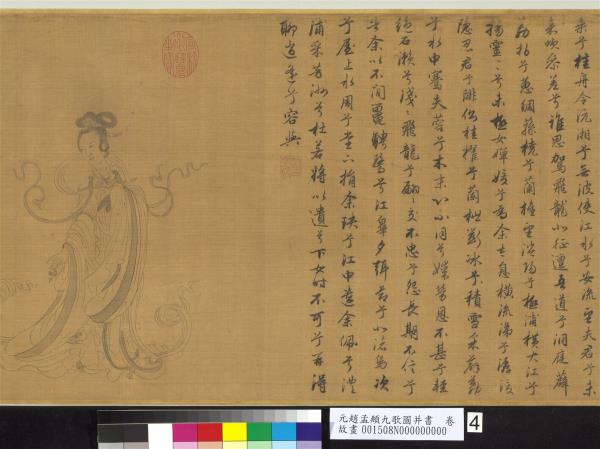 乘兮桂舟令沅湘兮無波使江水兮安流望夫君兮未
來吹參差兮誰思駕飛龍兮北征邅吾道兮洞庭薜
荔拍兮蕙綢蓀橈兮蘭旌望涔陽兮極浦橫大江兮
揚靈〻兮未極女嬋媛兮為余太息橫流涕兮潺湲
隱思君兮陫側桂櫂兮蘭枻斲冰兮積雪采薜荔
兮水中搴芙蓉兮木末心不同兮媒勞恩不甚兮輕
絕石瀨兮淺〻飛龍兮翩〻交不忠兮怨長期不信兮
告余以不閒鼂騁騖兮江皋夕弭節兮北渚鳥次
兮屋上水周兮堂下捐余玦兮江中遺余佩兮澧
浦采芳洲兮杜若將以遺兮下女時不可兮再得
聊逍遙兮容與
元趙孟頫九歌圖并書 卷
故畫 001508N000000000
4